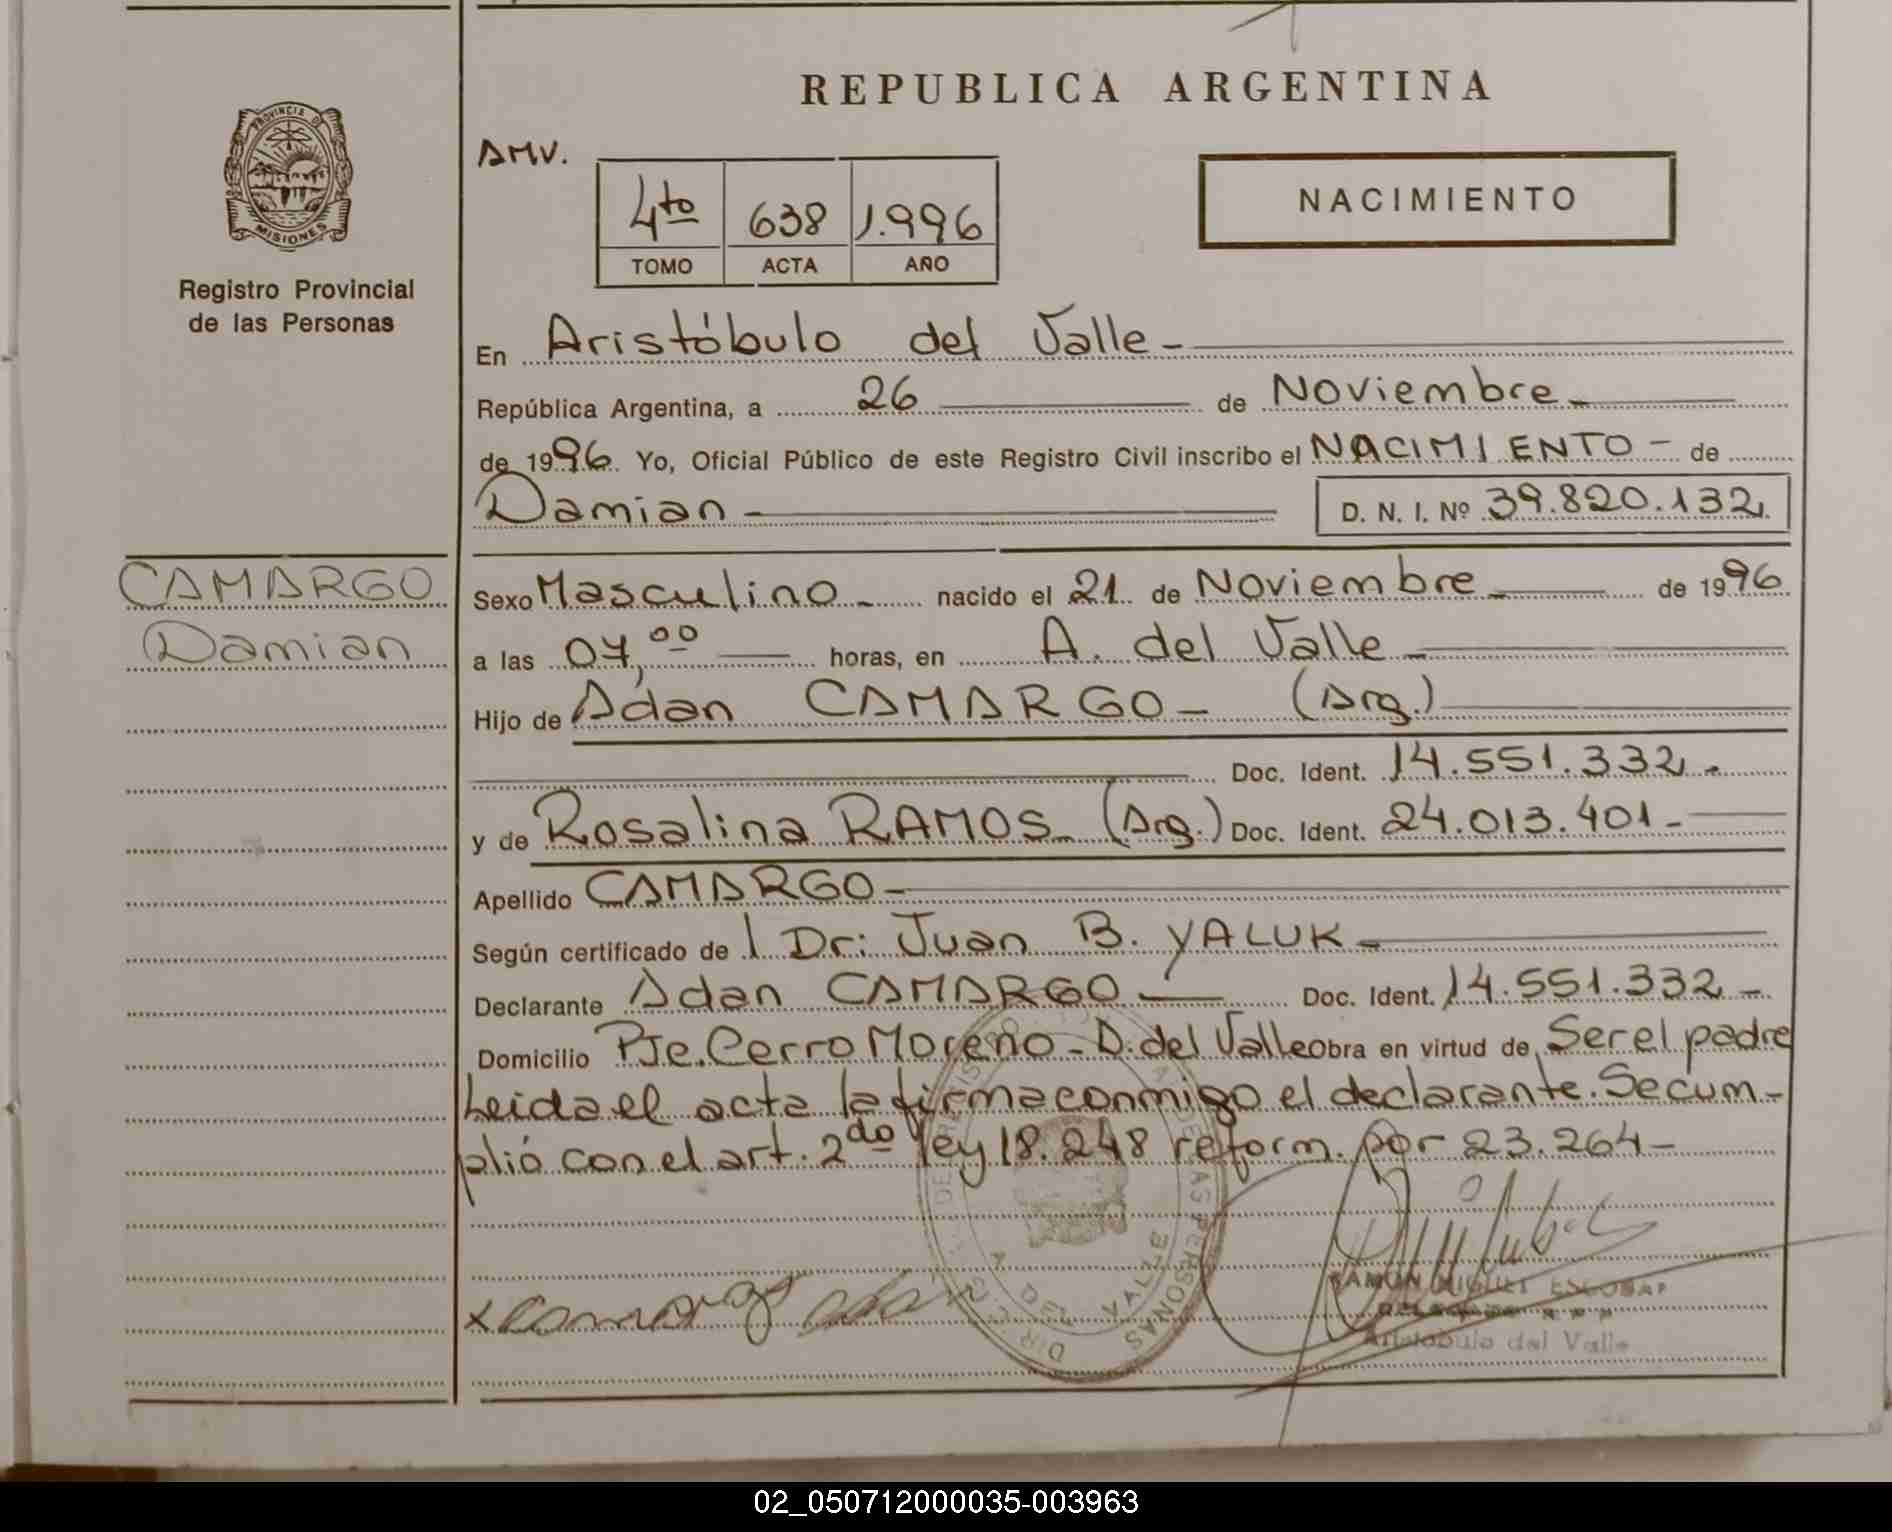 REPUBLICA ARGENTINA
PROVINCIA DE
MISIONES
Registro Provincial
de las Personas
AMV.
4to 638 1.996
TOMO ACTA AÑO
NACIMIENTO
En Aristóbulo del Valle-
República Argentina, a 26 de Noviembre-
de 1996. Yo, Oficial Público de este Registro Civil inscribo el NACIMIENTO- de
Damian- D. N. I. Nº 39.820.132.
CAMARGO
Damian
Sexo Masculino- nacido el 21 de Noviembre- de 1996
a las 07,00 horas, en A. del Valle-
Hijo de Adan CAMARGO- (Arg.)
Doc. Ident. 14.551.332.-
y de Rosalina RAMOS- (Arg.) Doc. Ident. 24.013.401.-
Apellido CAMARGO-
Según certificado de l Dr: Juan B. YALUK-
Declarante Adan CAMARGO- Doc. Ident. 14.551.332-
Domicilio Pje. Cerro Moreno- A. del Valle Obra en virtud de Ser el padre
Leida el acta la firma conmigo el declarante. Se cum-
plió con el art. 2do ley 18.248 reform. por 23.264-
x Camargo adan
DE LAS PERSONAS
A. DEL VALLE
RAMON MIGUEL ESCOBAR
Aristobulo del Valle
02_050712000035-003963